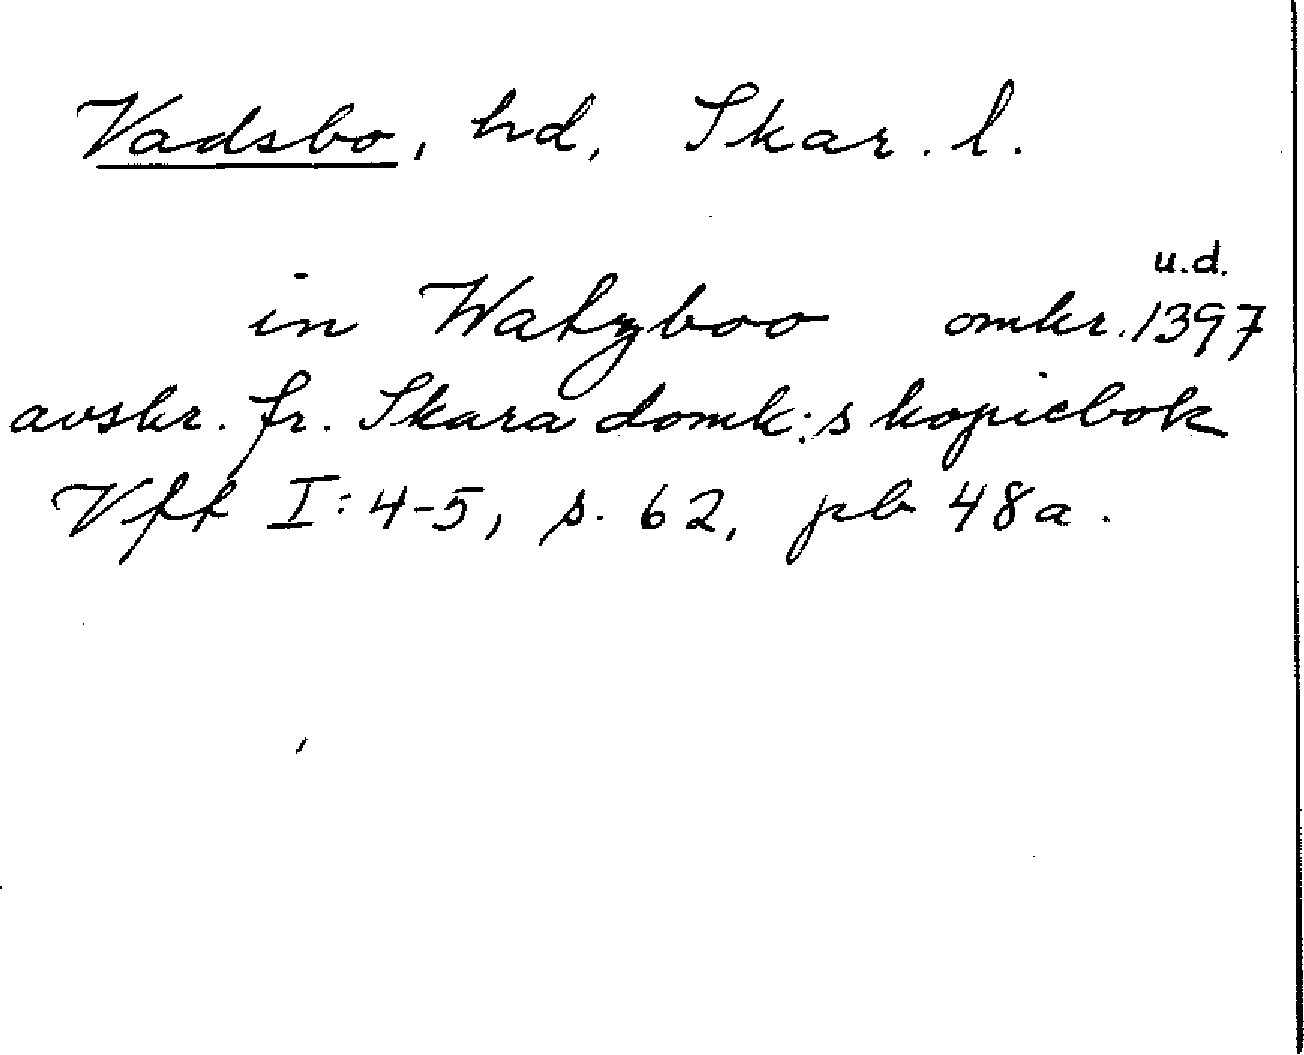 Vadsbo, hd, Skar. l.
u.d.
in Watzboo omkr. 1397
avskr. fr. Skara domk:s kopiebok
Vfft I: 4-5, s. 62, pb 48a.